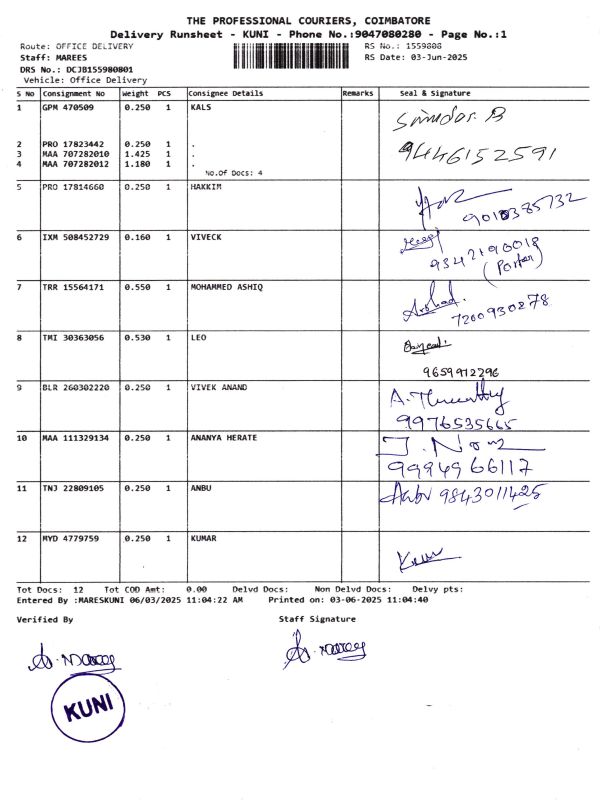 THE PROFESSIONAL COURIERS, COIMBATORE
Delivery Runsheet - KUNI - Phone No.:9047080280 - Page No.:1
Route: OFFICE DELIVERY RS No.: 1559808
Staff: MAREES RS Date: 03-Jun-2025
DRS No.: DCJB155980801
Vehicle: Office Delivery
S No Consignment No Weight PCS Consignee Details Remarks Seal & Signature
1 GPM 470509 0.250 1 KALS
2 PRO 17823442 0.250 1 .
3 MAA 707282010 1.425 1 .
4 MAA 707282012 1.180 1 . 9446152591
No.Of Docs: 4
5 PRO 17814660 0.250 1 HAKKIM
6 IXM 508452729 0.160 1 VIVECK
9342190018
(Porter)
7 TRR 15564171 0.550 1 MOHAMMED ASHIQ Arshad.
7200930278
8 TMI 30363056 0.530 1 LEO
9659912296
9 BLR 260302220 0.250 1 VIVEK ANAND
9976535665
10 MAA 111329134 0.250 1 ANANYA HERATE
9994966117
11 TNJ 22809105 0.250 1 ANBU Anbu 9843011425
12 MYD 4779759 0.250 1 KUMAR
Tot Docs: 12 Tot COD Amt: 0.00 Delvd Docs: Non Delvd Docs: Delvy pts:
Entered By :MARESKUNI 06/03/2025 11:04:22 AM Printed on: 03-06-2025 11:04:40
Verified By Staff Signature
KUNI